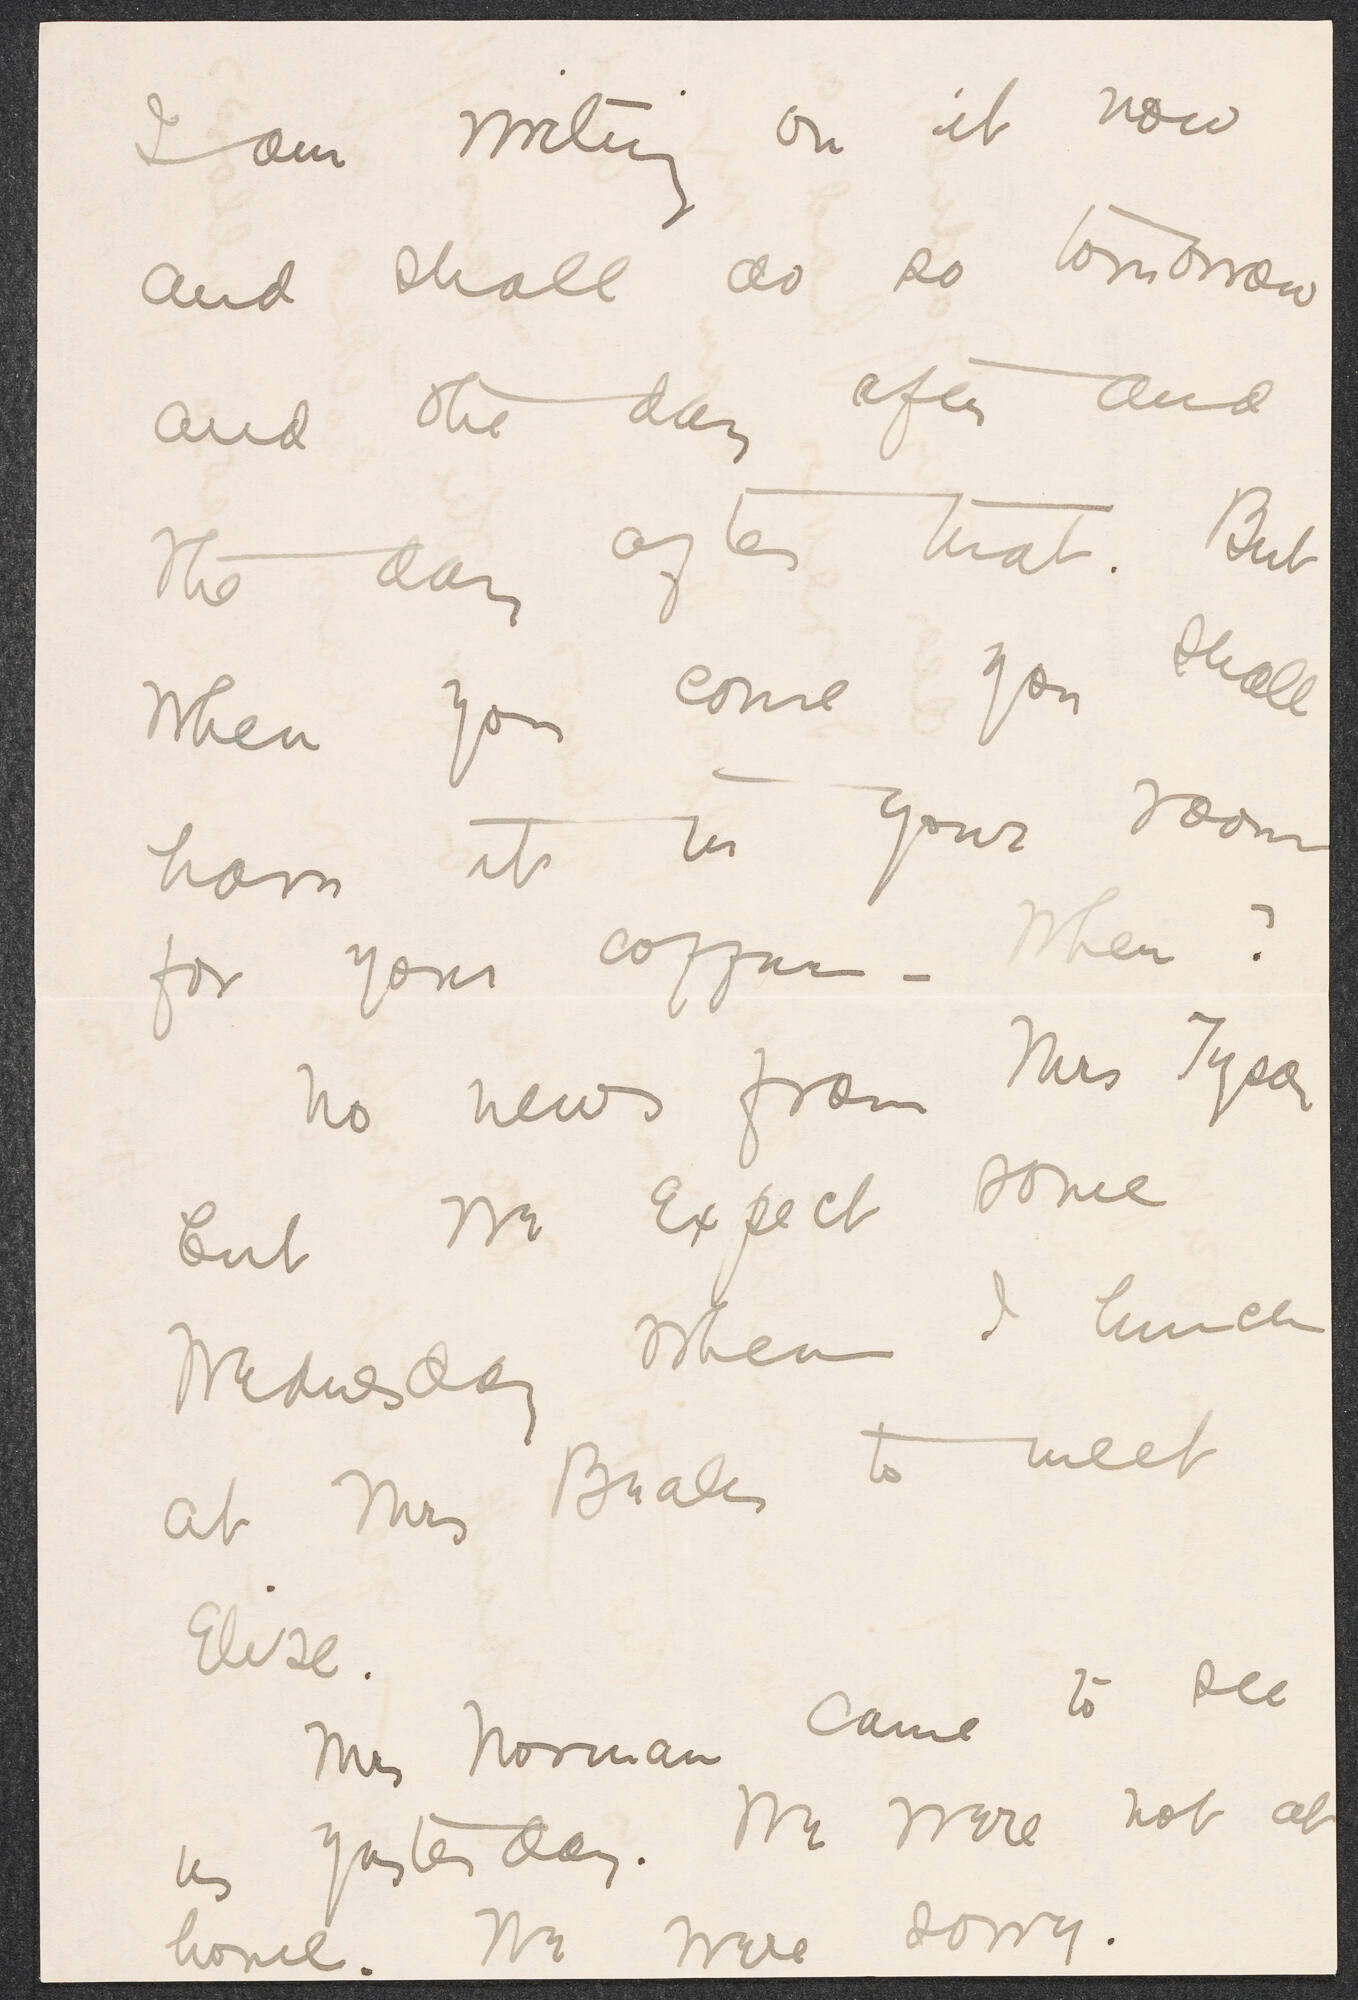 I am writing on it now
and shall do so tomorrow
and the day after and
the day after that. But
when you come you shall
have it in your room
for your - When?
No news from Mrs Tyson
but we expect some
Wednesday when I lunch
at Mrs Beales to meet
Elise.
Mrs Norman came to see
us yesterday. We were not at
home. We were sorry.